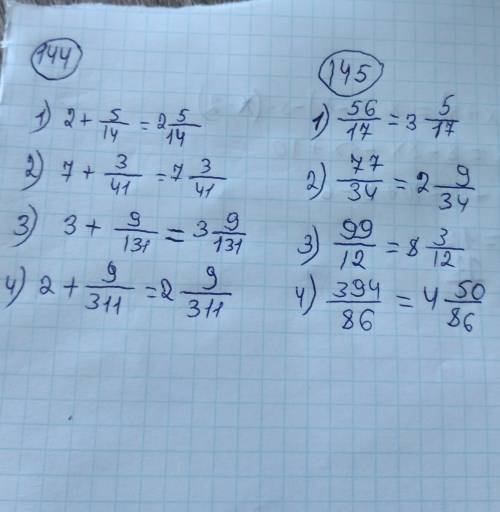 144
1) 2 + 5/14 = 2 5/14
2) 7 + 3/41 = 7 3/41
3) 3 + 9/131 = 3 9/131
4) 2 + 9/311 = 2 9/311
145
1) 56/17 = 3 5/17
2) 77/34 = 2 9/34
3) 99/12 = 8 3/12
4) 394/86 = 4 50/86